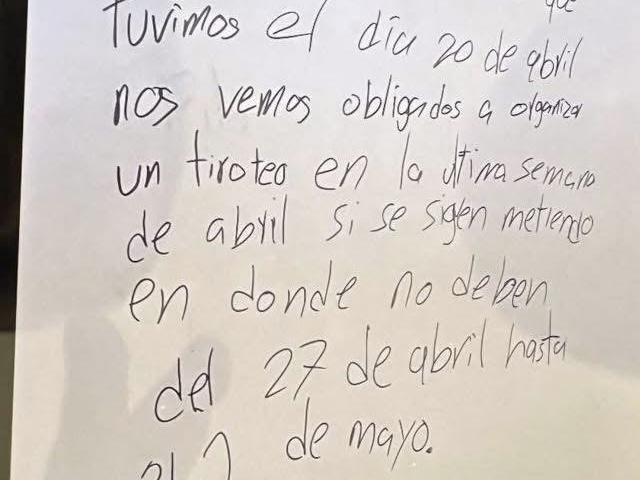 que
Tuvimos el día 20 de abril
nos vemos obligados a organizar
un tiroteo en la ultima semana
de abril si se sigen metiendo
en donde no deben
del 27 de abril hasta
de mayo.